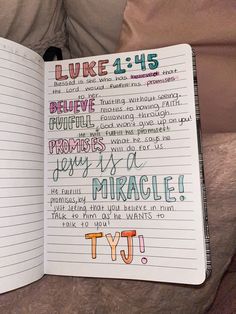 LUKE 1:45
Blessed is she who has believed that
the Lord would fulfill his promises
to her.
BELIEVE Trusting without seeing-
relates to having FAITH
FULFILL Following through
God won't give up on you!
He will fulfill his promises!
PROMISES What he said he
will do for us
Jesus is a
MIRACLE!
He fulfills
promises, by
just seeing that you believe in him
TALK to him as he WANTS to
talk to you!
TYJ!